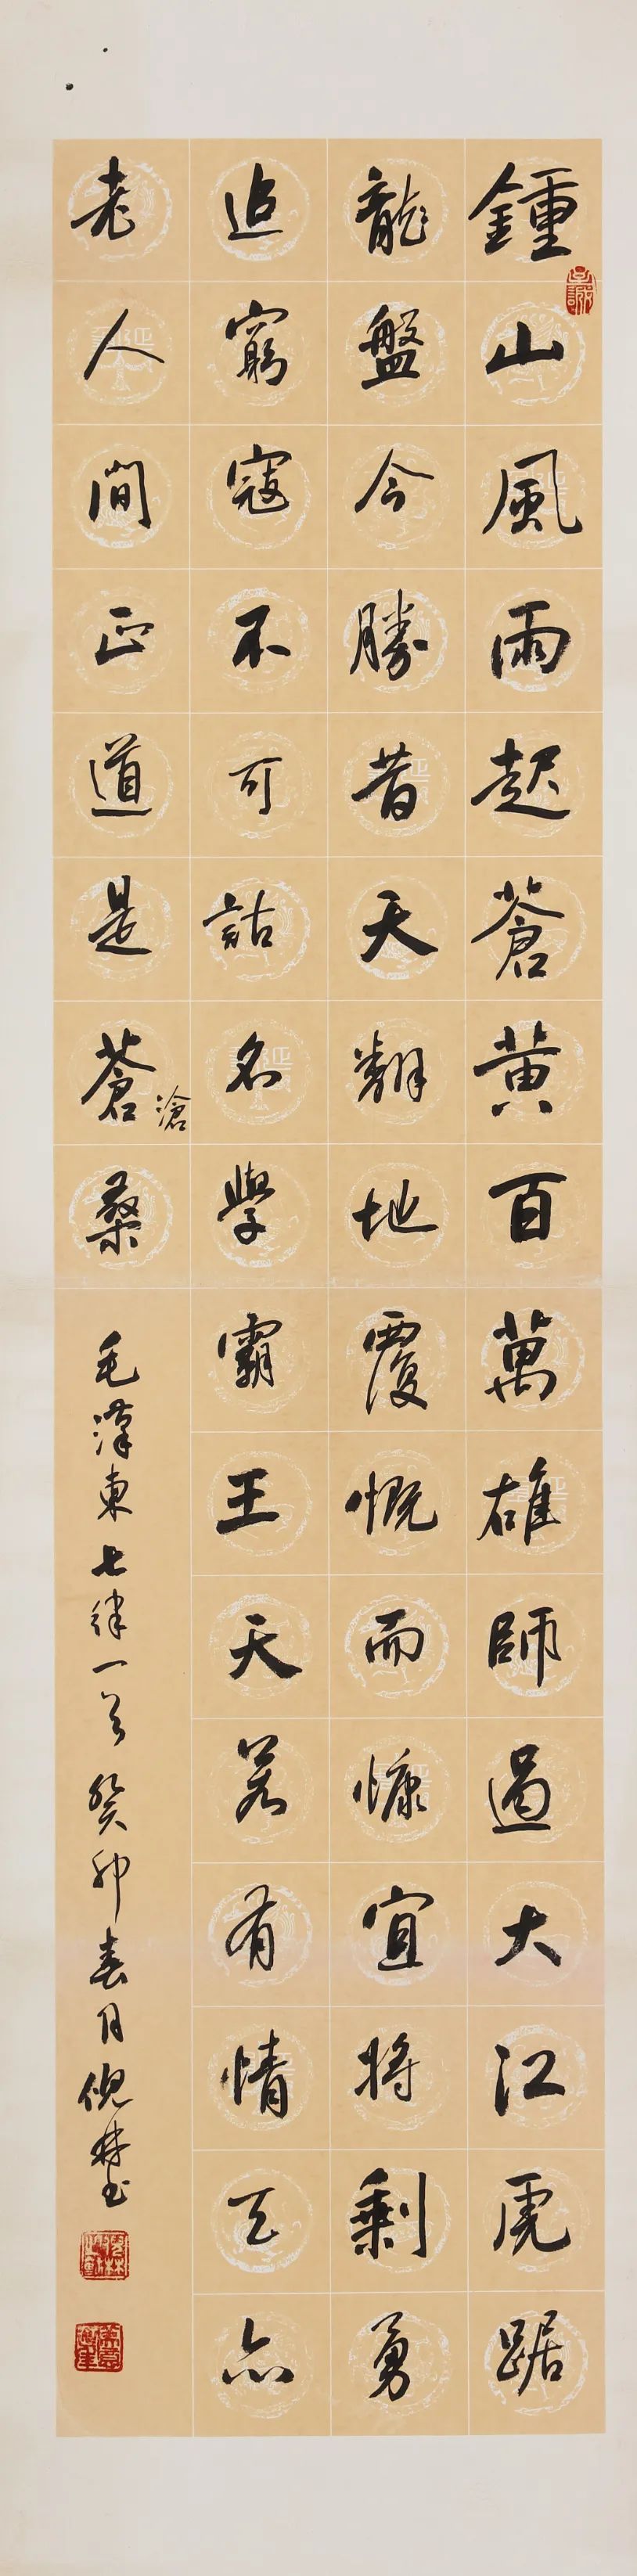 鍾山風雨起蒼黃百萬雄師過大江虎踞
龍盤今勝昔天翻地覆慨而慷宜將剩勇
追窮寇不可詁名學霸王天若有情天亦
老人間正道是蒼桑
滄
毛澤東七律一首癸卯春月倪林書